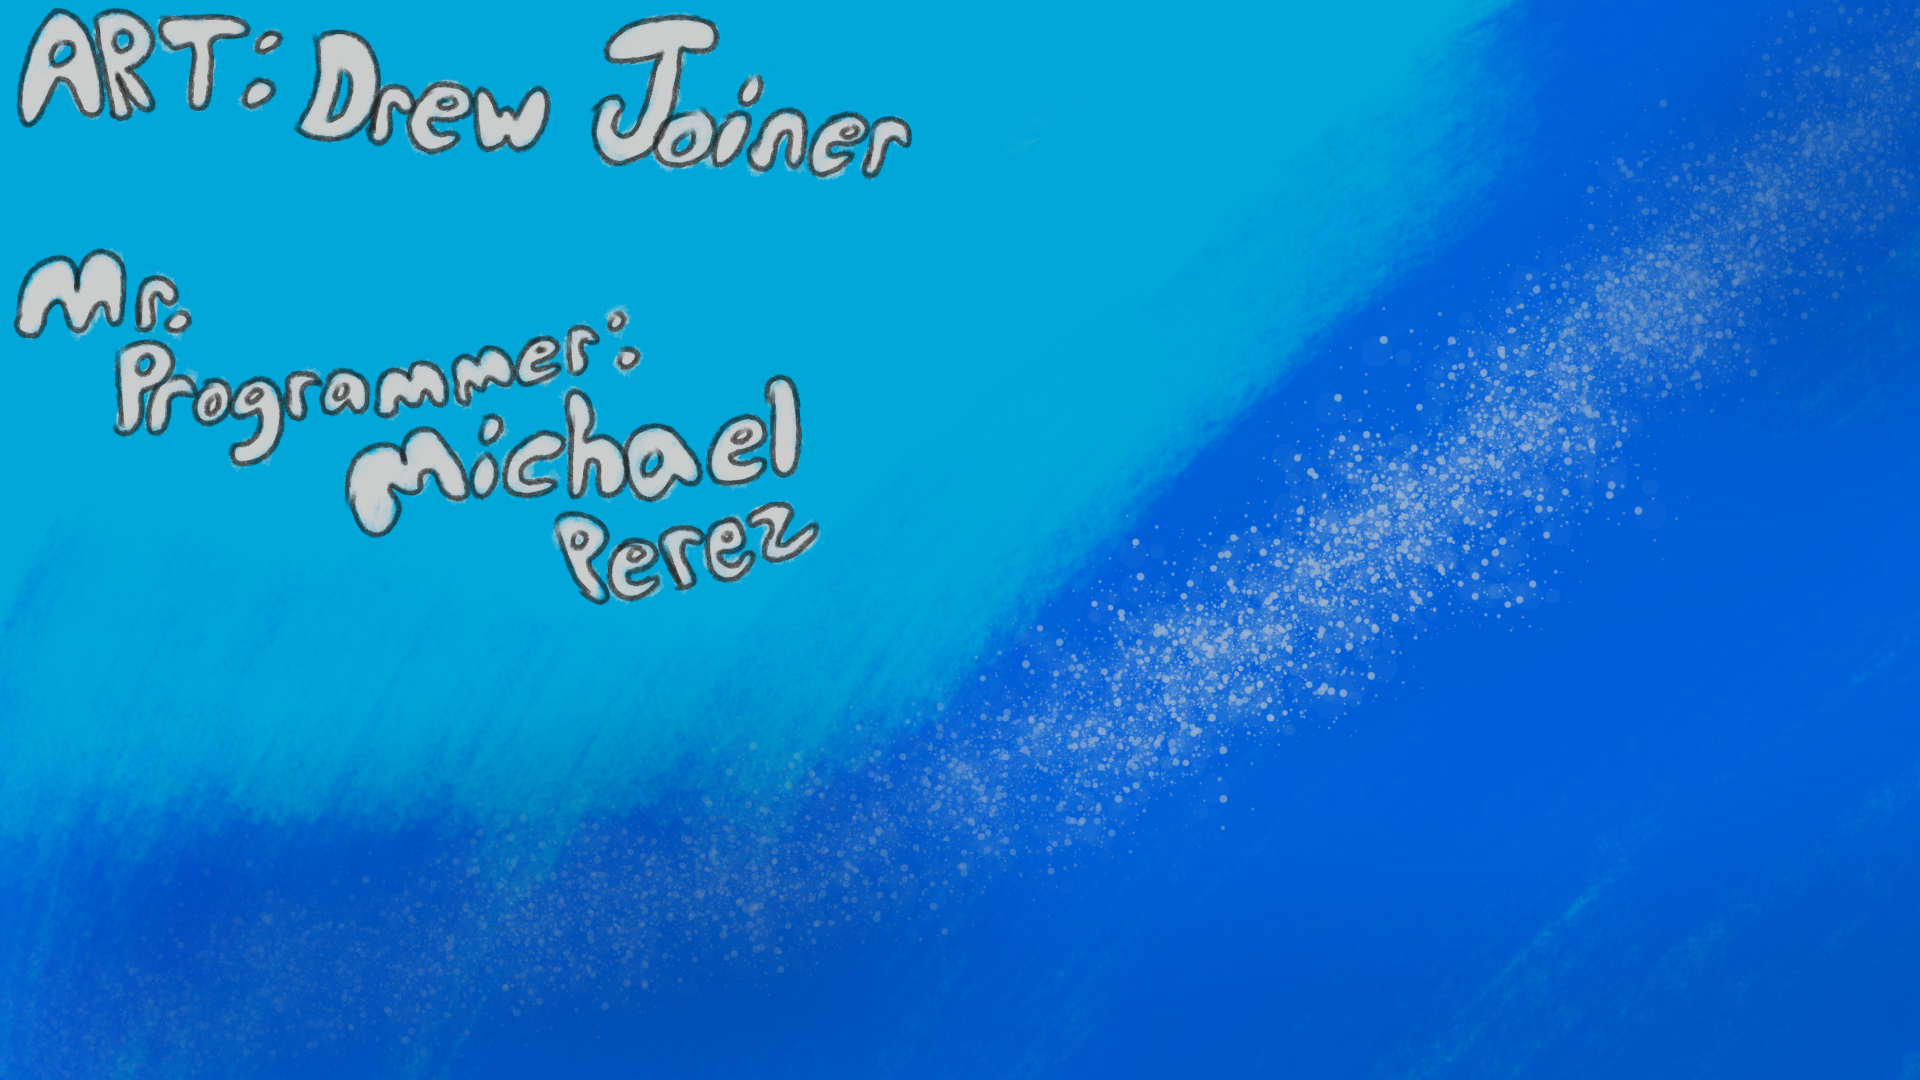 ART: Drew Joiner
Mr.
Programmer:
Michael
Perez